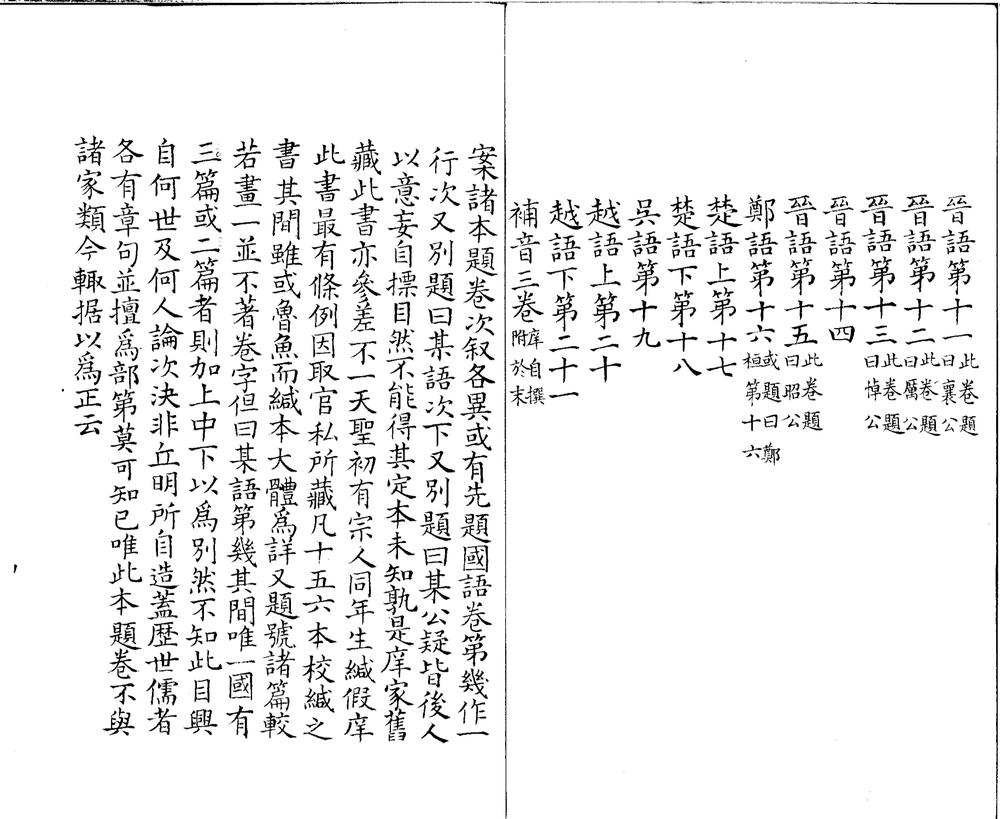 晉語第十一此卷題曰襄公
晉語第十二此卷題曰厲公
晉語第十三此卷題曰悼公
晉語第十四
晉語第十五此卷題曰昭公
鄭語第十六或題曰鄭桓第十六
楚語上第十七
楚語下第十八
吳語第十九
越語上第二十
越語下第二十一
補音三卷庠自撰附於末
案諸本題卷次叙各異或有先題國語卷第幾作一
行次又別題曰某語次下又別題曰某公疑皆後人
以意妄自標目然不能得其定本未知孰是庠家舊
藏此書亦參差不一天聖初有宗人同年生緘假庠
此書最有條例因取官私所藏凡十五六本校緘之
書其間雖或魯魚而緘本大體爲詳又題號諸篇較
若畫一並不著卷字但曰某語第幾其間唯一國有
三篇或二篇者則加上中下以爲別然不知此目興
自何世及何人論次決非丘明所自造蓋歷世儒者
各有章句並擅爲部第莫可知已唯此本題卷不與
諸家類今輒据以爲正云